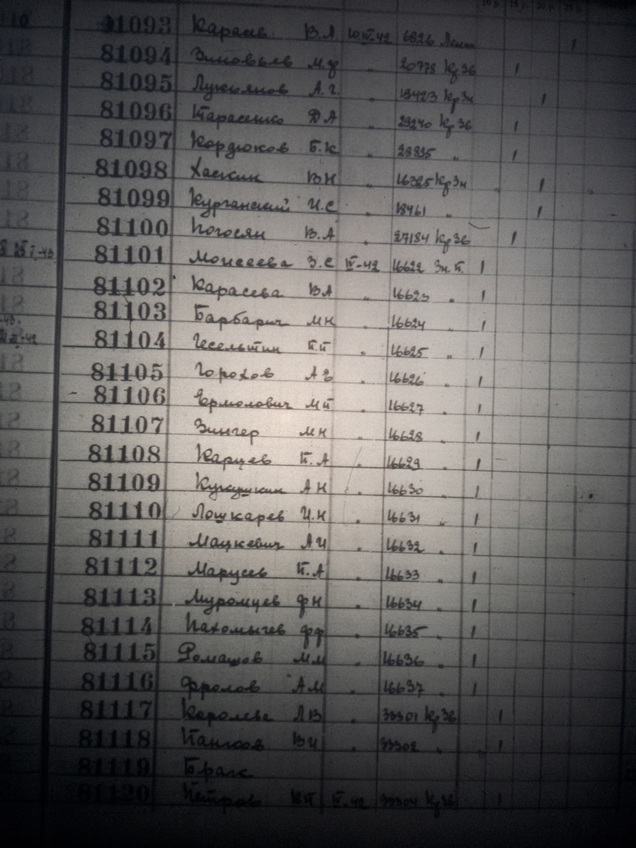 81093 Караев В.А 10 IV-42 6826
81094 Зиновьев М.Ф " 20778 Кр 36
81095 Лукьянов А.Г. " 19423 Кр Зн
81096 Тарасенко Д А " 29240 Кр 36
81097 Кордюков Б.К " "
81098 Хаскин ВН " 16325 Кр Зн
81099 Курганский И.С " 19461 "
81100 Погосян В.А " 27184 Кр 36
81101 Моисеева З.С IV-42 16622 Зн П.
81102 Карасева ВА " 16623 "
81103 Барбарич МН " 16624 "
81104 П.П " 16625 "
81105 Горохов АВ " 16626 "
81106 Ермолович МП " 16627 "
81107 Зингер МН " 16628 "
81108 Карцев П.А " 16629 "
81109 Кукушкин АН " 16630 "
81110 Лошкарев И.Н " 16631 "
81111 Мацкевич АИ " 16632 "
81112 Марусев П.А " 16633 "
81113 Муромцев ФН " 16634 "
81114 Пахомычев ФФ " 16635 "
81115 Ромашов ММ " 16636 "
81116 Фролов АМ " 16637 "
81117 Королева ЛВ " 39301 Кр 36
81118 ВИ " 39302 "
81119 Брак
81120 Петров IV-42 39304 Кр 36